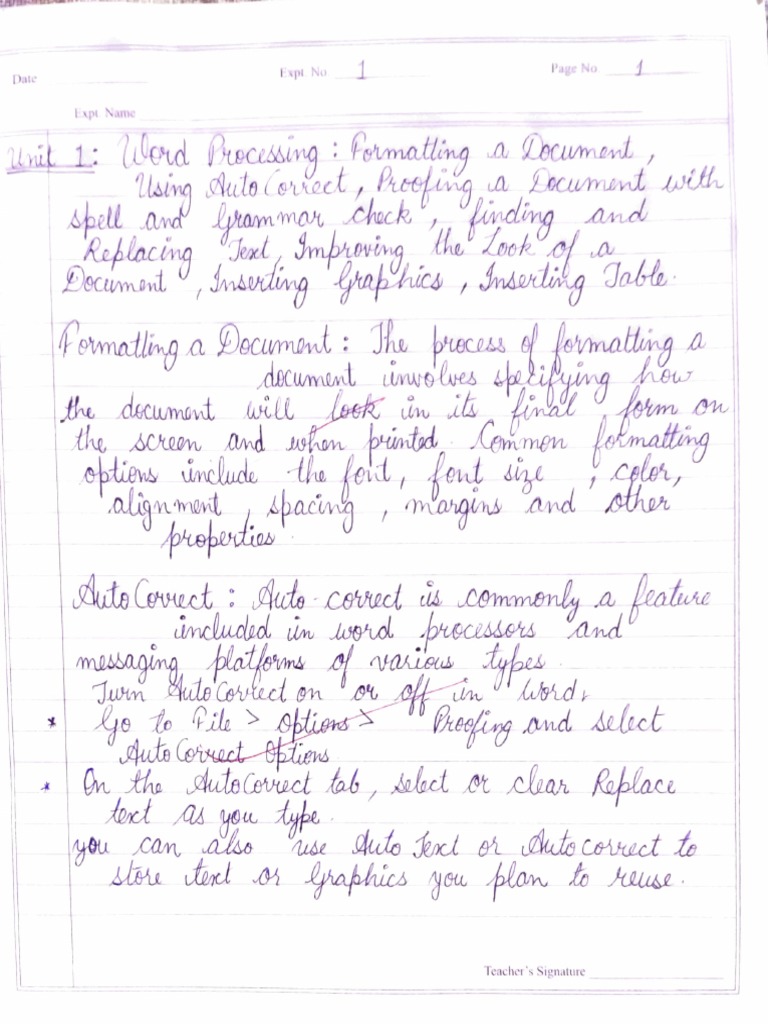 Date
Expt. No. 1
Page No. 1
Expt. Name
Unit 1: Word Processing: Formatting a Document,
Using AutoCorrect, Proofing a Document with
spell and Grammar check, finding and
Replacing Text, Improving the Look of a
Document, Inserting Graphics, Inserting Table.
Formatting a Document: The process of formatting a
document involves specifying how
the document will look in its final form on
the screen and when printed. Common formatting
options include the font, font size, color,
alignment, spacing, margins and other
properties.
AutoCorrect: Auto-correct is commonly a feature
included in word processors and
messaging platforms of various types.
Turn AutoCorrect on or off in Word,
* Go to File > Options > Proofing and select
AutoCorrect Options.
* On the AutoCorrect tab, select or clear Replace
text as you type.
you can also use AutoText or Autocorrect to
store text or Graphics you plan to reuse.
Teacher's Signature